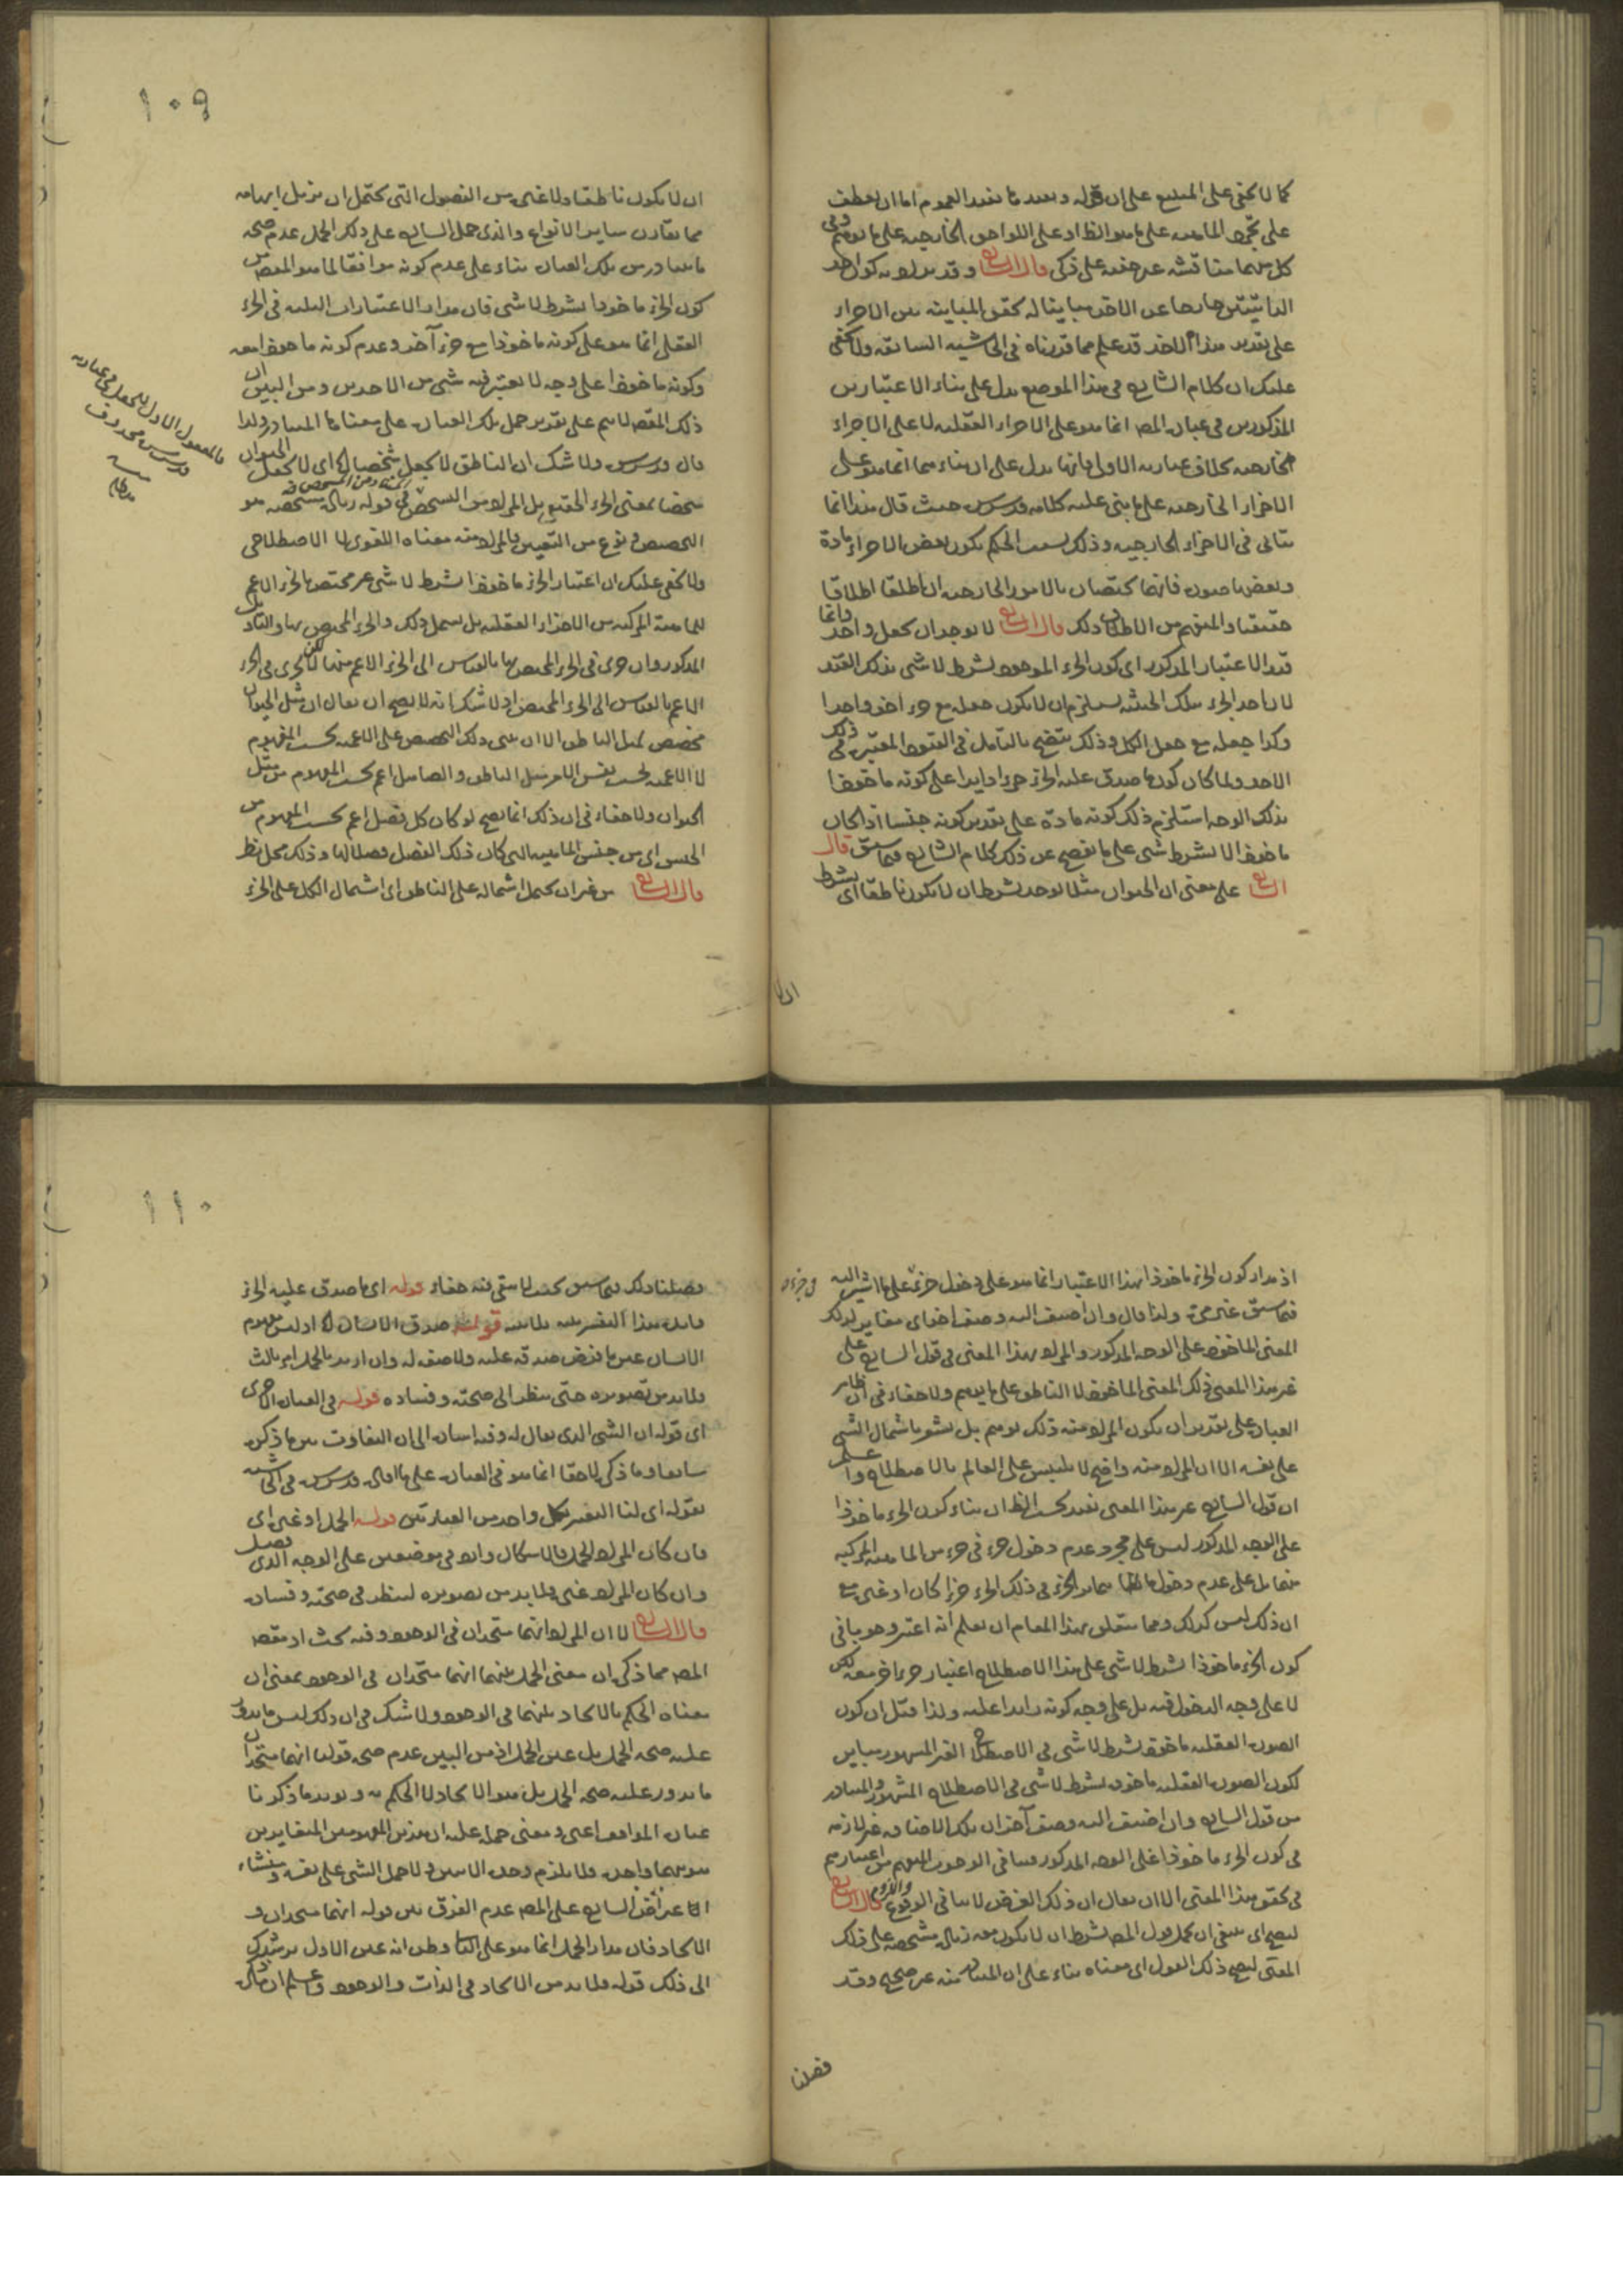 كما لا يخفى على المتتبع على ان قوله وبعد ما يفيد العموم اما ان يعطف
على تجرد الماهية على ما هو الظاهر او على اللواحق الخارجية على ما توهم وفى
كل منهما مناقشة غير خفية على ذكى قال الشارح وقد يراد به كون احد
الذاتيتين خارجا عن الآخر مباينا له تحقق المباينة بين الاجزاء
على تقدير هذا الاخذ قد علم مما قدرناه فى الحاشية السابقة ولا يخفى
عليك ان كلام الشارح فى هذا الموضع يدل على بناء الاعتبارين
المذكورين فى عبارة المص انما هو على الاجزاء العقلية لا على الاجزاء
الخارجية بخلاف عبارته الاولى فانها تدل على ان بناءهما انما هو على
الاجزاء الخارجية على ما بنى عليه كلامه قدس سره حيث قال هذا انما
يتأتى فى الاجزاء الخارجية وذلك بسبب الحكم بكون بعض الاجزاء مادة
وبعضها صورة فانهما يختصان بالامور الخارجية ان اطلقا اطلاقا
حقيقيا والمفهوم من الاطلاق ذلك قال الشارح لا يوجد ان يجعل واحد وانما
قيد الاعتبار المذكور اى كون الجزء المأخوذ بشرط لا شى بذلك القيد
لان اخذ الجزء بتلك الحيثية يستلزم ان لا يكون جعله مع جزء آخر واحدا
وكذا جعله مع جعل الكل وذلك يتضح بالتأمل فى القيود المعتبرة فى ذلك
الاخذ ولما كان كون ما صدق عليه الجزء جزءا زايدا على كونه مأخوذا
بذلك الوجه استلزم ذلك كونه مادة على تقدير كونه جنسا اذا كان
مأخوذا لا بشرط شى على ما يفصح عن ذلك كلام الشارح فيما سبق قال
الشارح على معنى ان الحيوان مثلا يوجد بشرط ان لا يكون ناطقا اى بشرط
ان لا
١٠٩
ان لا يكون ناطقا ولا غيره من الفصول التى يحتمل ان يزيل ابهامه
مما يقارن ساير الانواع والذى حمل الشارح على ذلك الحمل عدم صحة
ما يتبادر من تلك العبارة بناء على عدم كونه موافقا لما هو المقص من
كون الجزء مأخوذا بشرط لا شى فان مدار الاعتبارات الثلثة فى الجزء
العقلى انما هو على كونه مأخوذا مع جزء آخر وعدم كونه مأخوذا معه
وكونه مأخوذا على وجه لا يعتبر فيه شى من الاخذين ومن البين ان
ذلك المقص لا يتم على تقدير حمل تلك العبارة على معناها المتبادر ولذا
قال قدس سره ولا شك ان الناطق لا يجعل شخصيا اى لا يجعل الحيوان
شخصا بمعنى الجزء الحقيقى بل المراد من التشخص فى قوله زيادة مشخصة هو
التخصص ونوع من التعيين فالمراد منه معناه اللغوى لا الاصطلاحى
ولا يخفى عليك ان اعتبار الجزء مأخوذا بشرط لا شى غير مختص بالجزء الاعم
للماهية المركبة من الاجزاء العقلية بل يشمل ذلك والجزء المختص بها والتأويل
المذكور وان جرى فى الجزء المختص بها بالقياس الى الجزء الاعم منها لكن لا يجرى فى الجزء
الاعم بالقياس الى الجزء المختص اذ لا شك انه لا يصح ان يقال ان مثل الحيوان
مخصص لمثل الناطق الا ان يبنى ذلك التخصص على الاعمية بحسب المفهوم
لا الاعمية بحسب نفس الامر مثل الناطق والصاهل اعم بحسب المفهوم من مثل
الحيوان ولا خفاء فى ان ذلك انما يصح لو كان كل فصل اعم بحسب المفهوم من
الجنس اى من جنس الماهية التى كان ذلك الفصل فصلا لها وذلك محل نظر
قال الشارح من غير ان يحتمل اشتماله على الناطق اى اشتمال الكل على الجزء
فالمفعول الاول ليجعل فى عبارته
قدس سره محذوف
منه
مد ظله
اذ مدار كون الجزء مأخوذا بهذا الاعتبار انما هو على دخول جزئه على ما اشير اليه
فيما سبق غير مرة ولذا قال وان اضيف اليه وصف آخر اى مغاير لذلك
المعنى المأخوذ على الوجه المذكور والمراد بهذا المعنى فى قول الشارح على
غير هذا المعنى ذلك المعنى المأخوذ لا الناطق على ما يتوهم ولا خفاء فى ان ظاهر
العبارة على تقدير ان يكون المراد منه ذلك يوهم بل يشعر باشتمال الشى
على نفسه الا ان المراد منه واضح لا يلتبس على العالم بالاصطلاح واعلم
ان قول الشارح غير هذا المعنى يفيد بحسب الظاهر ان بناء كون الجزء مأخوذا
على الوجه المذكور ليس على مجرد عدم دخول جزء فى جزء من الماهية المركبة
منهما بل على عدم دخول ما يغاير الجزء فى ذلك الجزء جزءا كان او غيره مع
ان ذلك ليس كذلك ومما يتعلق بهذا المقام ان تعلم انه اعتبر وجوبا فى
كون الجزء مأخوذا بشرط لا شى على هذا الاصطلاح اعتبار جزء آخر معه لكن
لا على وجه الدخول فيه بل على وجه كونه زايدا عليه ولذا قيل ان كون
الصورة العقلية مأخوذة بشرط لا شى فى الاصطلاح الغير المشهور مباين
لكون الصورة العقلية مأخوذة بشرط لا شى فى الاصطلاح المشهور والمتبادر
من قول الشارح وان اضيف اليه وصف آخر ان تلك الاضافة غير لازمة
فى كون الجزء مأخوذا على الوجه المذكور فينافى الوجوب المفهوم من اعتبارهم
فى تحقق هذا المعنى الا ان يقال ان ذلك الفرض لا ينافى الوقوع واللزوم قال الشارح
ليصح اى ينبغى ان يحمل قول المص بشرط ان لا يكون معه زيادة مشخصة على ذلك
المعنى ليصح ذلك القول اى معناه بناء على ان المتبادر منه غير صحيح وقد
فى جزءه
فصلنا
١١٠
فصلنا ذلك فيما سبق بحيث لا يبقى فيه خفاء قوله اى ما صدق عليه الجزء
هذا التفسير قوله صدق الانسان اذ ليس مفهوم
الانسان عين ما فرض صدقه عليه ولا صفة له وان اريد بالحمل امر ثالث
فلا بد من تصويره حتى ينظر الى صحته وفساده قوله فى العبارة الاخرى
اى قوله ان الشى الذى يقال له وفيه اشارة الى ان التفاوت بين ما ذكره
سابقا وما ذكره لاحقا انما هو فى العبارة على ما افاده قدس سره فى الحاشية
بقوله اى لنا التفسير بكل واحد من العبارتين قوله الحمل او غيره اى
فان كان المراد الحمل فالاشكال وارد فى موضعين على الوجه الذى فصل
وان كان المراد غيره فلا بد من تصويره لينظر فى صحته وفساده
قال الشارح لا ان المراد انهما متحدان فى الوجود وفيه بحث اذ مقصد
المص مما ذكره ان معنى الحمل بينهما انهما متحدان فى الوجود بمعنى ان
معناه الحكم بالاتحاد بينهما فى الوجود ولا شك فى ان ذلك ليس ما يدور
عليه صحة الحمل بل عين الحمل اذ من البين عدم صحة قولنا انهما متحدان
ما يدور عليه صحة الحمل بل هو الاتحاد لا الحكم به ويؤيد ما ذكرنا
عبارة المواقف اعنى ومعنى حمله عليه ان هذين المفهومين المتغايرين
هويتهما واحدة فلا يلزم وحدة الاثنين ولا حمل الشى على نفسه ومنشاء
اعتراض الشارح على المص عدم الفرق بين قوله انهما متحدان و
الاتحاد فان مدار الحمل انما هو على الثانى وظن انه عين الاول يرشدك
الى ذلك قوله فلا بد من الاتحاد فى الذات والوجود واعلم ان